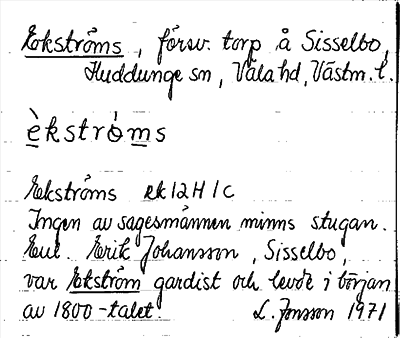 Ekströms, försv. torp å Sisselbo,
Huddunge sn, Våla hd, Västm. l.
èkstrò̀ms
Ekströms ek 12H 1c
Ingen av sagesmännen minns stugan.
Enl. Erik Johansson, Sisselbo,
var Ekström gardist och levde i början
av 1800-talet. L. Jonsson 1971